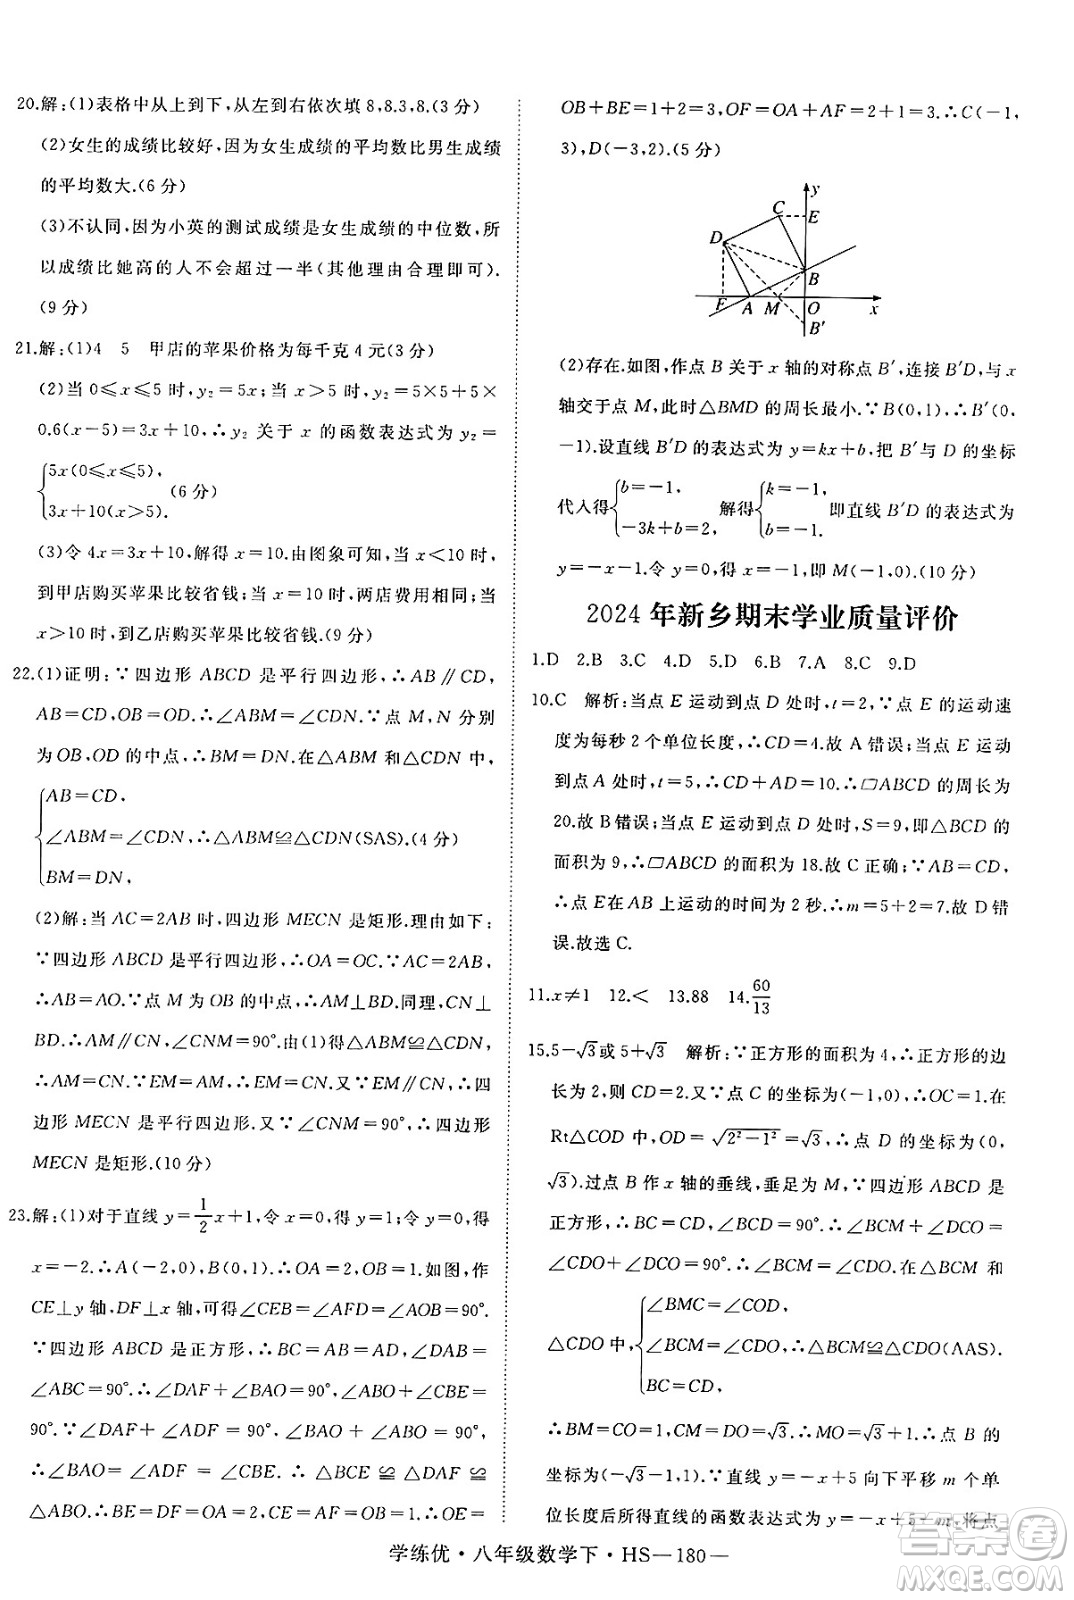 20.解:(1)表格中从上到下,从左到右依次填8,8.3,8.(3分)
(2)女生的成绩比较好,因为女生成绩的平均数比男生成绩
的平均数大.(6分)
(3)不认同,因为小英的测试成绩是女生成绩的中位数,所
以成绩比她高的人不会超过一半(其他理由合理即可).
(9分)
21.解:(1)4 5 甲店的苹果价格为每千克4元(3分)
(2)当0≤x≤5时,y₂=5x;当x>5时,y₂=5×5+5×
0.6(x-5)=3x+10,∴y₂关于x的函数表达式为y₂=
{5x(0≤x≤5),
3x+10(x>5).
(6分)
(3)令4x=3x+10,解得x=10.由图象可知,当x<10时,
到甲店购买苹果比较省钱;当x=10时,两店费用相同;当
x>10时,到乙店购买苹果比较省钱.(9分)
22.(1)证明:∵四边形ABCD是平行四边形,∴AB∥CD,
AB=CD,OB=OD.∴∠ABM=∠CDN.∵点M,N分别
为OB,OD的中点,∴BM=DN.在△ABM和△CDN中,
{AB=CD,
∠ABM=∠CDN,∴△ABM≌△CDN(SAS).(4分)
BM=DN,
(2)解:当AC=2AB时,四边形MECN是矩形.理由如下:
∵四边形ABCD是平行四边形,∴OA=OC.∵AC=2AB,
∴AB=OA.∵点M为OB的中点,∴AM⊥BD.同理,CN⊥
BD.∴AM∥CN,∠CNM=90°.由(1)知△ABM≌△CDN,
∴AM=CN.又∵EM=AM,∴EM=CN.又∵EM∥CN,∴四
边形MECN是平行四边形.又∵∠CNM=90°,∴四边形
MECN是矩形.(10分)
23.解:(1)对于直线y=1/2x+1,令x=0,得y=1;令y=0,得
x=-2.∴A(-2,0),B(0,1).∴OA=2,OB=1.如图,作
CE⊥y轴,DF⊥x轴,可得∠CEB=∠AFD=∠AOB=90°.
∵四边形ABCD是正方形,∴BC=AB=DA,∠DAB=
∠ABC=90°.∴∠DAF+∠BAO=90°,∠ABO+∠CBE=
90°.∵∠DAF+∠ADF=90°,∠BAO+∠ABO=90°,
∴∠BAO=∠ADF=∠CBE.∴△BCE≌△DAF≌
△ABO.∴BE=DF=OA=2,CE=AF=OB=1.∴OE=
OB+BE=1+2=3,OF=OA+AF=2+1=3.∴C(-1,
3),D(-3,2).(5分)
y
C
E
D
B
F A M O x
B′
(2)存在.如图,作点B关于x轴的对称点B′,连接B′D,与x
轴交于点M,此时△BMD的周长最小.∵B(0,1),∴B′(0,
-1).设直线B′D的表达式为y=kx+b,把B′与D的坐标
代入得{b=-1, -3k+b=2,解得{k=-1, b=-1.即直线B′D的表达式为
y=-x-1.令y=0,得x=-1,即M(-1,0).(10分)
2024年新乡期末学业质量评价
1.D 2.B 3.C 4.D 5.D 6.B 7.A 8.C 9.D
10.C 解析:当点E运动到点D处时,t=2,∵点E的运动速
度为每秒2个单位长度,∴CD=4.故A错误;当点E运动
到点A处时,t=5,∴CD+AD=10.∴▱ABCD的周长为
20.故B错误;当点E运动到点D处时,S=9,即△BCD的
面积为9,∴▱ABCD的面积为18.故C正确;∵AB=CD,
∴点E在AB上运动的时间为2秒.∴m=5+2=7.故D错
误.故选C.
11.x≠1 12.< 13.88 14.60/13
15.5-√3或5+√3 解析:∵正方形的面积为4,∴正方形的边
长为2,则CD=2.∵点C的坐标为(-1,0),∴OC=1.在
Rt△COD中,OD=√(2²-1²)=√3,∴点D的坐标为(0,
√3).过点B作x轴的垂线,垂足为M.∵四边形ABCD是
正方形,∴BC=CD,∠BCD=90°.∴∠BCM+∠DCO=
∠CDO+∠DCO=90°.∴∠BCM=∠CDO.在△BCM和
△CDO中,{∠BMC=∠COD,
∠BCM=∠CDO,∴△BCM≌△CDO(AAS).
BC=CD,
∴BM=CO=1,CM=DO=√3.∴MO=√3+1.∴点B的
坐标为(-√3-1,1).∵直线y=-x+5向下平移m个单
位长度后所得直线的函数表达式为y=-x+5-m,将点
学练优·八年级数学下·HS—180—
答案圈
MXQE.COM